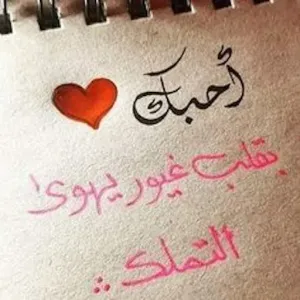 أحبك
بقلب غيور يهوى
التملك